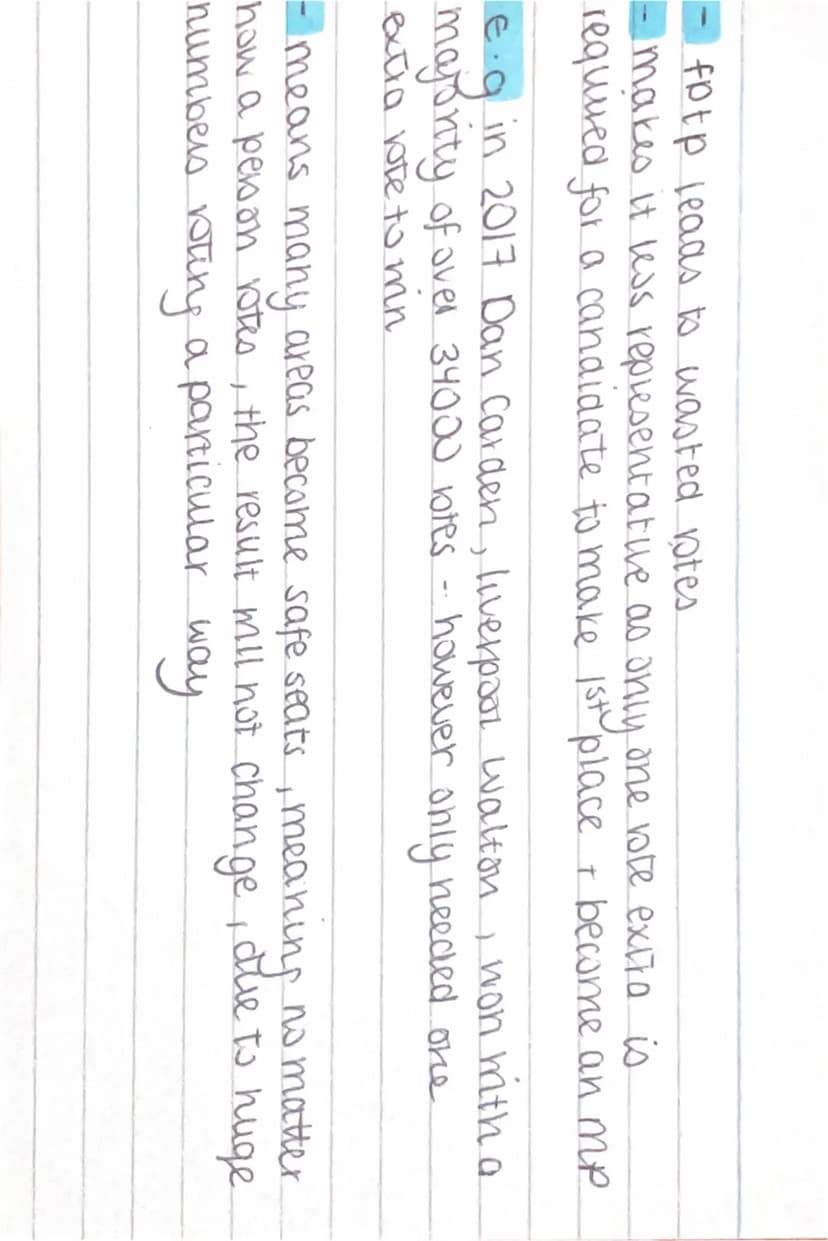 - fptp leads to wasted votes
- makes it less representative as only one vote extra is
required for a candidate to make 1st place + become an MP
e.g in 2017 Dan Carden, Liverpool Walton, won with a
majority of over 34000 votes - however only needed one
extra vote to win
- means many areas become safe seats, meaning no matter
how a person votes, the result will not change, due to huge
numbers voting a particular way